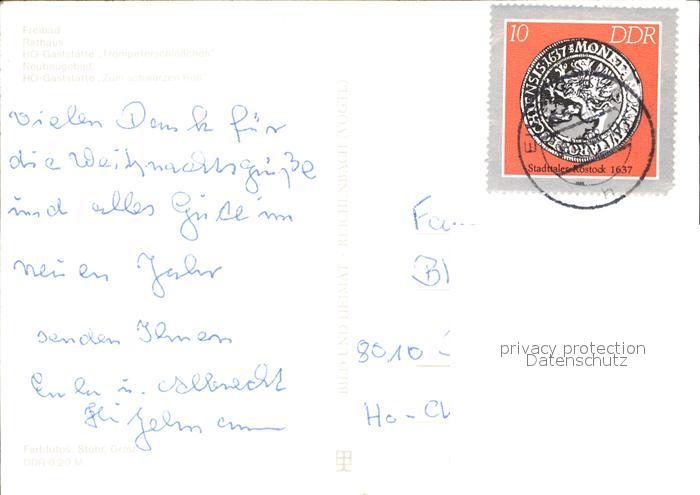 Freibad
Rathaus
HO-Gaststätte „Trompeterschlößchen“
Neubaugebiet
HO-Gaststätte „Zum schwarzen Roß“
10 DDR
1637 MONETA
Stadttaler Rostock 1637
Vielen Dank für
die Weihnachtsgrüße
und alles Gute im
neuen Jahr
senden Ihnen
u. Albrecht
Fa...
Bl
8010
Ho-Cl
BILD UND HEIMAT · REICHENBACH (VOGTL)
privacy protection
Datenschutz
Farbfotos: Stöhr,
DDR 0,20 M